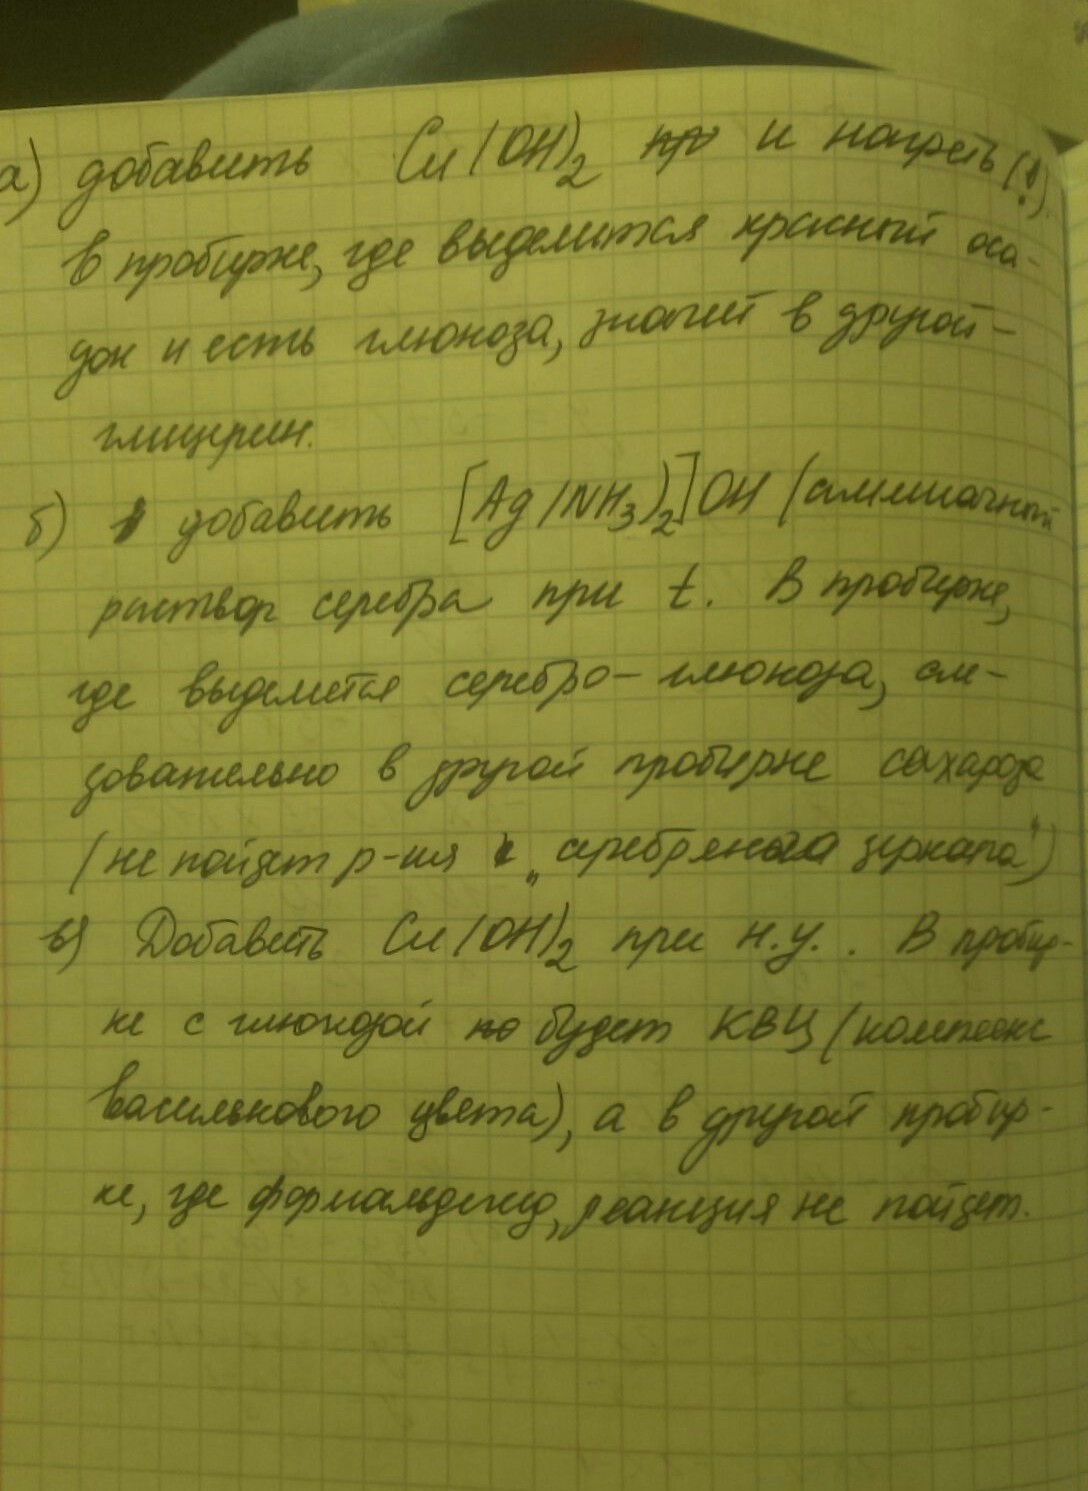 а) добавить Cu(OH)2 и нагреть (!).
в пробирке, где выделится красный оса-
док и есть глюкоза, значит в другой –
глицерин.
б) добавить [Ag(NH3)2]OH (аммиачный
раствор серебра при t. В пробирке,
где выделется серебро – глюкоза, сле-
довательно в другой пробирке сахароза
(не пойдет р-ия „серебряного зеркала")
в) Добавить Cu(OH)2 при н.у. . В пробир-
ке с глюкозой будет КВЦ (комплекс
василькового цвета), а в другой пробир-
ке, где формальдегид, реакция не пойдет.